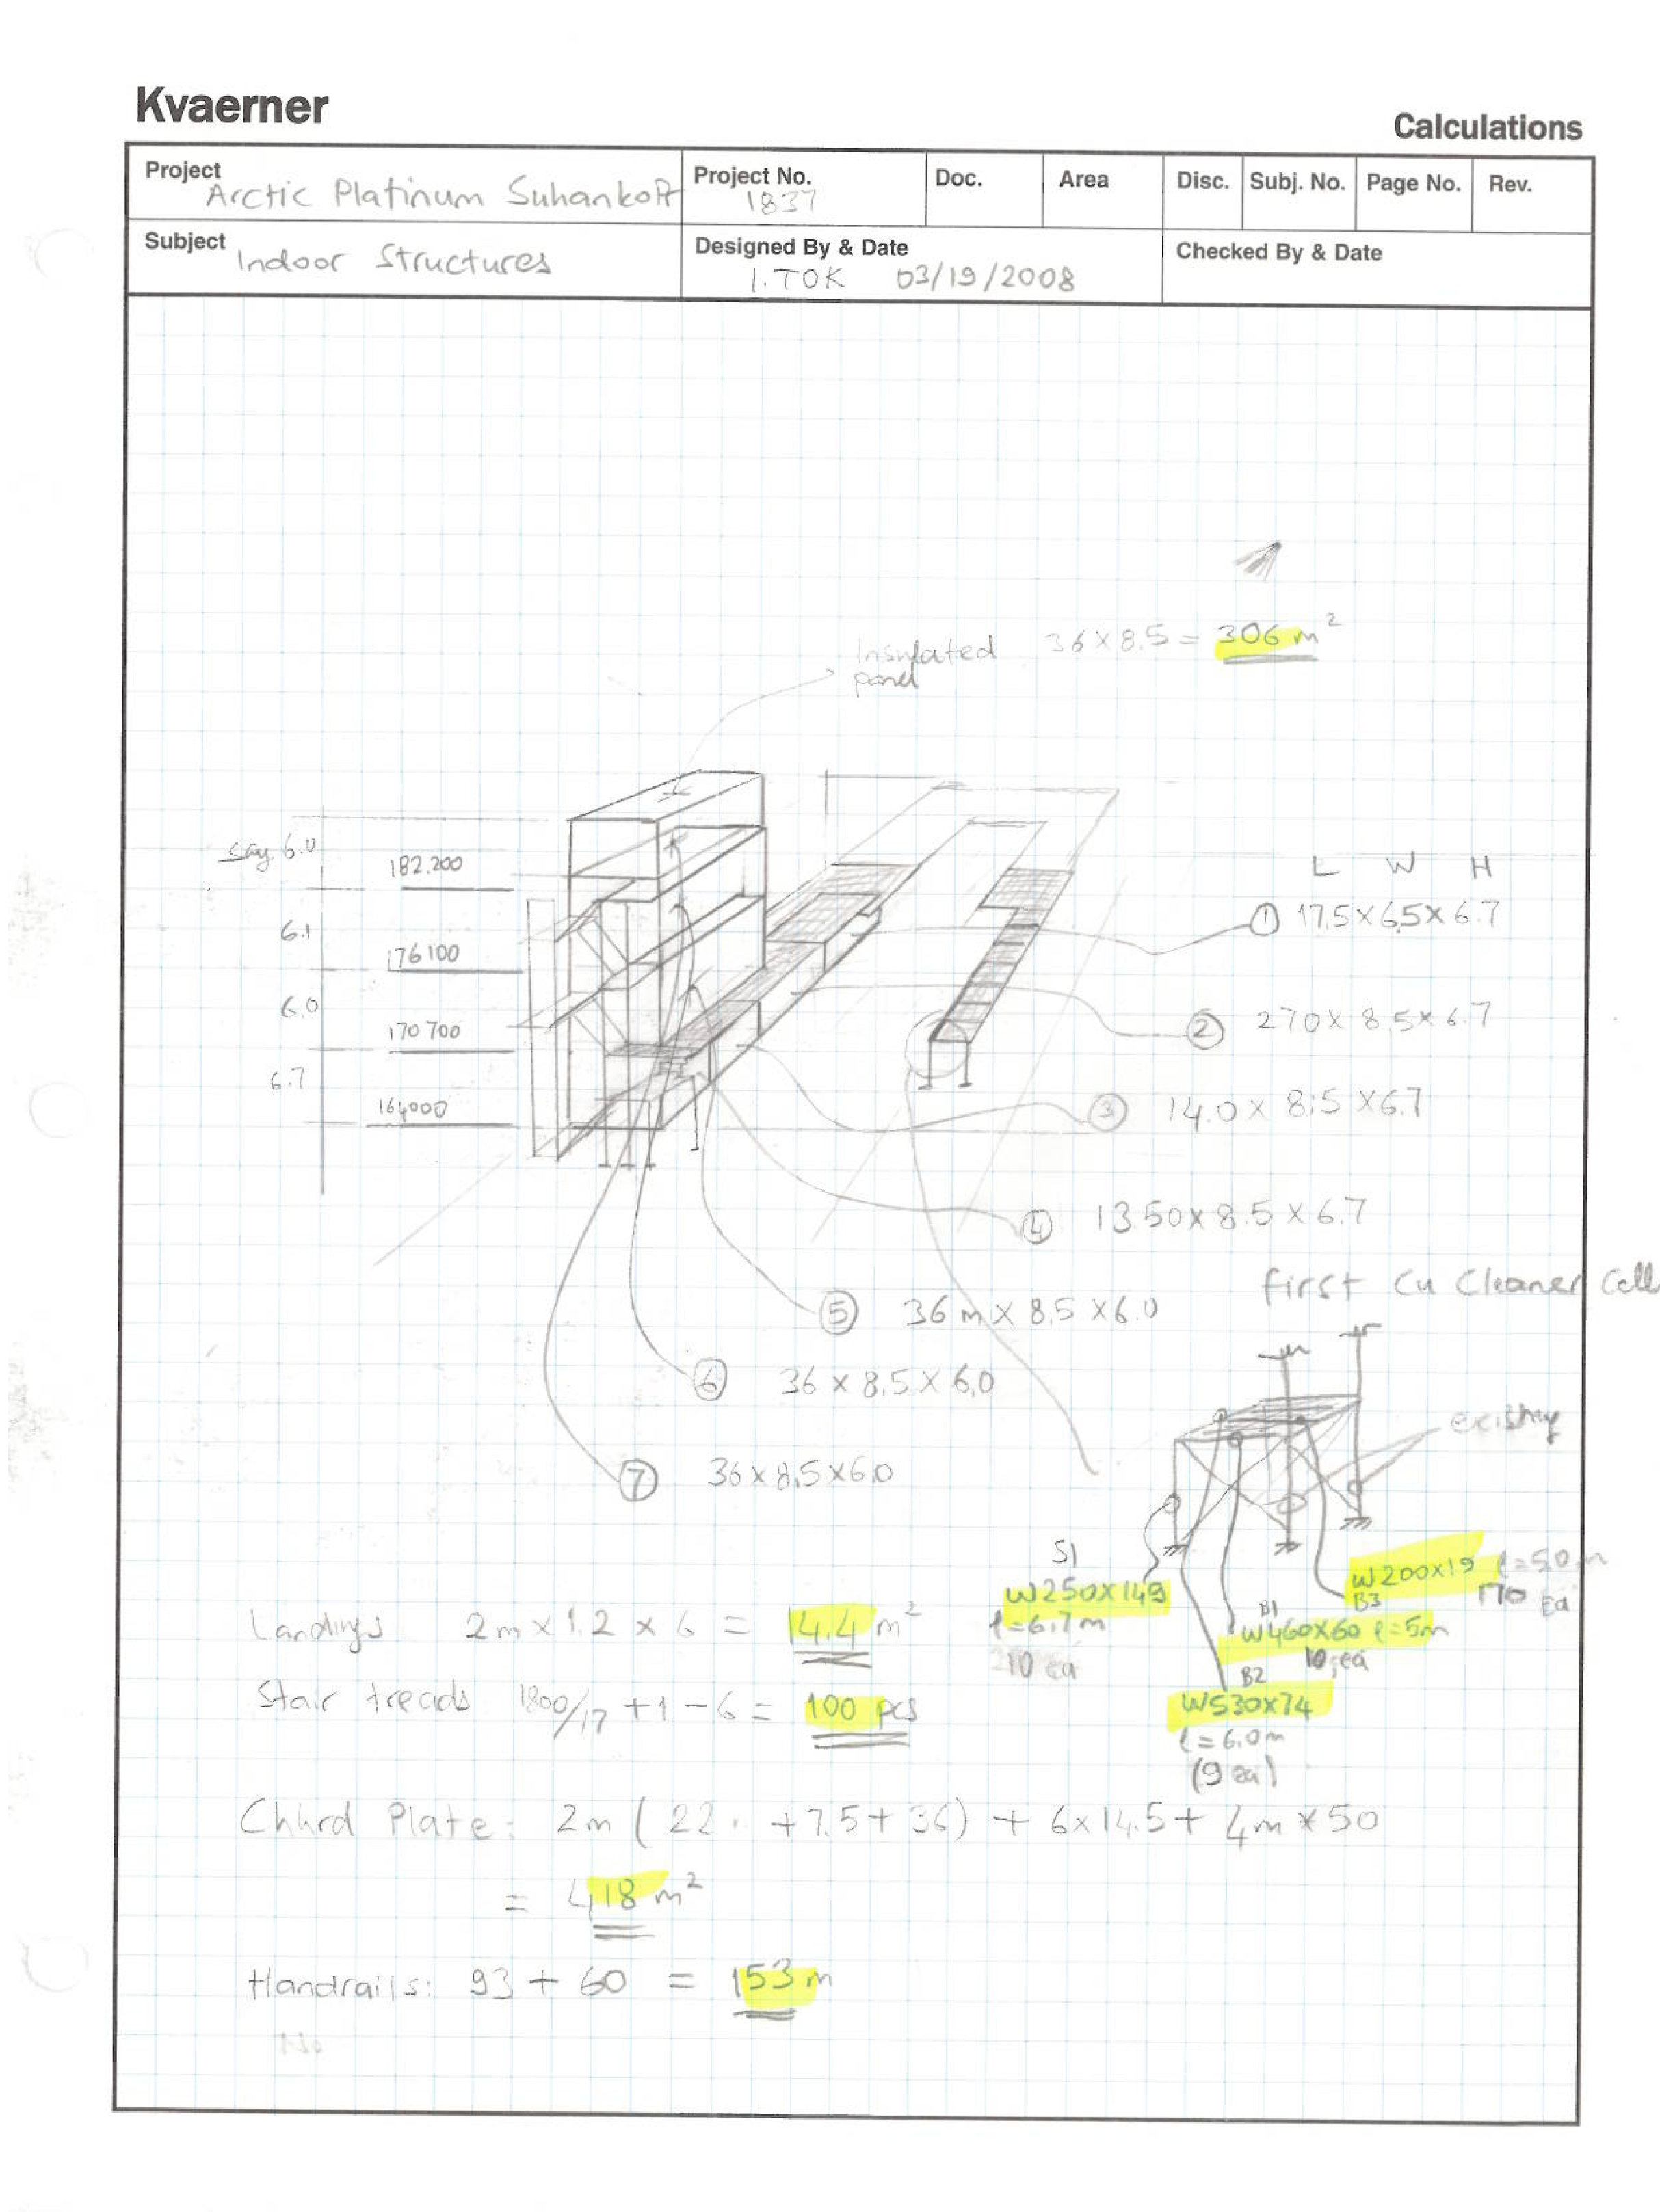 Kvaerner
Calculations
Project
Arctic Platinum Suhanko
Project No.
1837
Doc.
Area
Disc.
Subj. No.
Page No.
Rev.
Subject
Indoor Structures
Designed By & Date
I.TOK 03/19/2008
Checked By & Date
Insulated 36 x 8.5 = 306 m²
panel
say 6.0
182.200
6.1
176100
6.0
170700
6.7
164000
L W H
① 17.5 x 6.5 x 6.7
② 27.0 x 8.5 x 6.7
③ 14.0 x 8.5 x 6.7
④ 13.50 x 8.5 x 6.7
⑤ 36 m x 8.5 x 6.0
⑥ 36 x 8.5 x 6.0
⑦ 36 x 8.5 x 6.0
first Cu Cleaner Cell
existing
S1
W250x149
l=6.7m
10 ea
W200x19 l=5.0m
B3
170 ea
B1
W460x60 l=5m
10 ea
B2
W530x74
l=6.0m
(9 ea)
Landings 2m x 1.2 x 6 = 14.4 m²
Stair treads 1800/17 + 1 - 6 = 100 pcs
Chkrd Plate: 2m ( 22. + 7.5 + 36) + 6x14.5 + 4m x 50
= 418 m²
Handrails: 93 + 60 = 153 m
No